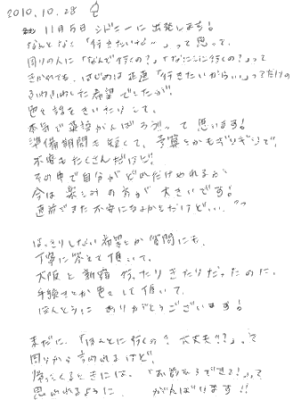 2010.10.28
11月5日 シドニーに出発します!
なんとなく「行きたいな〜」って思って、
周りの人に「なんで行くの?」「なにしに行くの?」って
きかれても、はじめは正直「行きたいから…」ってだけの
希望でしたが、
色々話をきいたりして、
本気で英語がんばろうって思います!
準備期間も短くて、予算とかもギリギリで、
不安もたくさんだけど
その中で自分がどれだけやれるか
今は楽しみの方が大きいです!
直前でまた不安になるかもだけど…
はっきりしない希望とか質問にも、
丁寧に答えて頂いて、
大阪と 行ったりきたりだったのに、
手続きとか色々して頂いて、
ほんとうに ありがとうございます!
まだに、「ほんとに行くの? 大丈夫??」って
周りから言われるけど、
帰ってくるときには、「お前がうできる?」って
思われるように がんばります!!